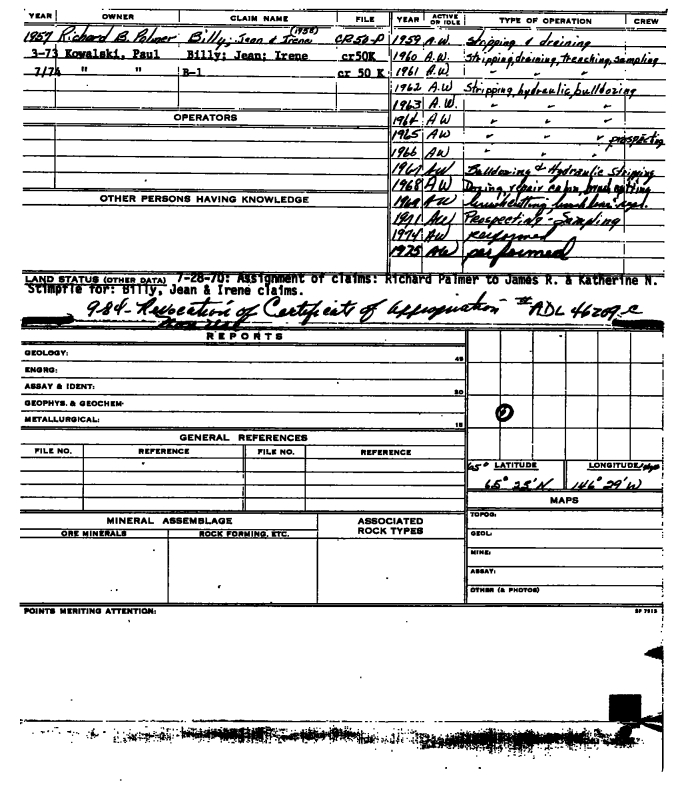 YEAR OWNER CLAIM NAME FILE YEAR ACTIVE OR IDLE TYPE OF OPERATION CREW
1957 Richard B. Palmer Billy; Jean & Irene (1958) CR50-P 1959 A.W. Stripping & draining
3-73 Kowalski, Paul Billy; Jean; Irene cr50K 1960 A.W. Stripping, draining, trenching, sampling
7/74 " " B-1 cr 50 K 1961 A.W. " " "
1962 A.W Stripping, hydraulic, bulldozing
1963 A.W. " " "
OPERATORS 1964 AW " " "
1965 AW " " " prospecting
1966 AW
1967 AW Bulldozing & Hydraulic Stripping
1968 AW Dozing, repair cabin, brush cutting
OTHER PERSONS HAVING KNOWLEDGE 1969 AW
1971 AW Prospecting - Sampling
1974 AW performed
1975 AW performed
LAND STATUS (OTHER DATA) 7-28-70: Assignment of claims: Richard Palmer to James R. & Katherine N.
Stimple for: Billy, Jean & Irene claims.
984- Revocation of Certificate of Appropriation # ADL 46209
REPORTS
GEOLOGY: 45
ENGRG:
ASSAY & IDENT: 30
GEOPHYS. & GEOCHEM-
METALLURGICAL: 15
GENERAL REFERENCES
FILE NO. REFERENCE FILE NO. REFERENCE
65° LATITUDE LONGITUDE
65° 25'N. 146° 29'W
MAPS
MINERAL ASSEMBLAGE ASSOCIATED ROCK TYPES TOPOG:
ORE MINERALS ROCK FORMING, ETC. GEOL:
MINE:
ASSAY:
OTHER (& PHOTOS)
POINTS MERITING ATTENTION: SP 7915